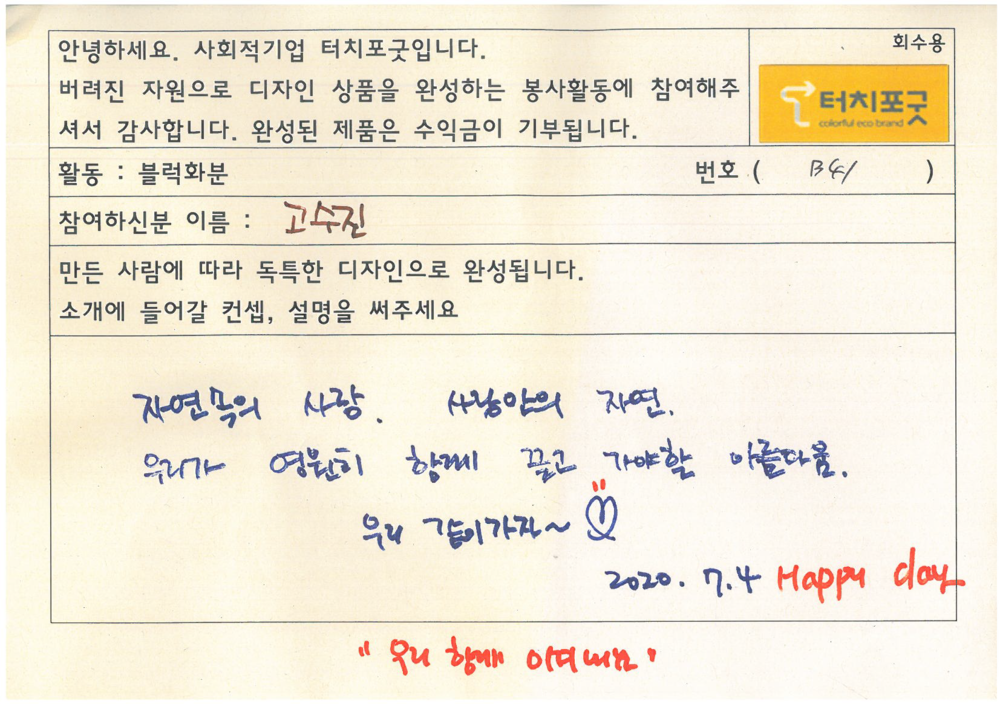 안녕하세요. 사회적기업 터치포굿입니다.
회수용
버려진 자원으로 디자인 상품을 완성하는 봉사활동에 참여해주
셔서 감사합니다. 완성된 제품은 수익금이 기부됩니다.
터치포굿
colorful eco brand
활동 : 블럭화분
번호 ( B41 )
참여하신분 이름 : 고수진
만든 사람에 따라 독특한 디자인으로 완성됩니다.
소개에 들어갈 컨셉, 설명을 써주세요
자연속의 사랑. 사랑안의 자연.
우리가 영원히 함께 끌고 가야할 아름다움.
우리 같이가자~
2020. 7. 4 Happy day
"우리 함께 이겨내요"